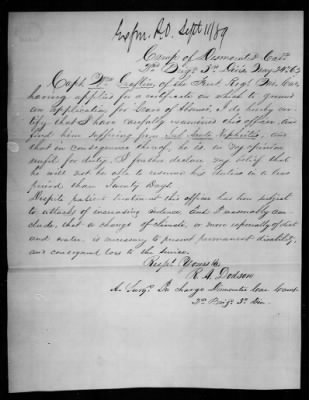 Sept 11/89
Camp of Dismounted Cav.
2d Brig. 3d Divis. May 24th 65
Capt. Wm. of the First Regt. Cav.
having applied for a certificate on which to ground
an application for Leave of Absence, I do hereby cer-
tify that I have carefully examined this officer and
find him suffering from Sub Acute Nephritis, and
that in consequence thereof, he is, in my opinion
unfit for duty. I further declare my belief that
he will not be able to resume his duties in a less
period than Twenty Days.
Despite patient treatment this officer has been subject
to attacks of increasing violence, and I naturally con-
clude, that a change of climate, or more especially of diet
and water, is necessary to prevent permanent disability,
and consequent loss to the service.
Respt. Yours &c
R. A. Dodson
A. Surgn. In charge Dismounted Cav. Camp
2d Brig. 3d Div.